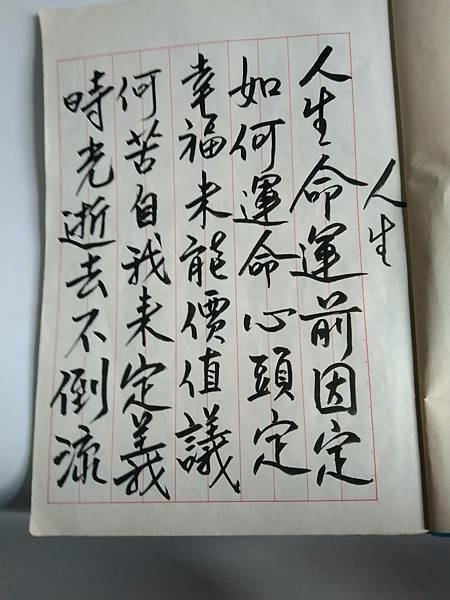 人生
人生命運前因定
如何運命心頭定
幸福未能價值議
何苦自我来定義
時光逝去不倒流